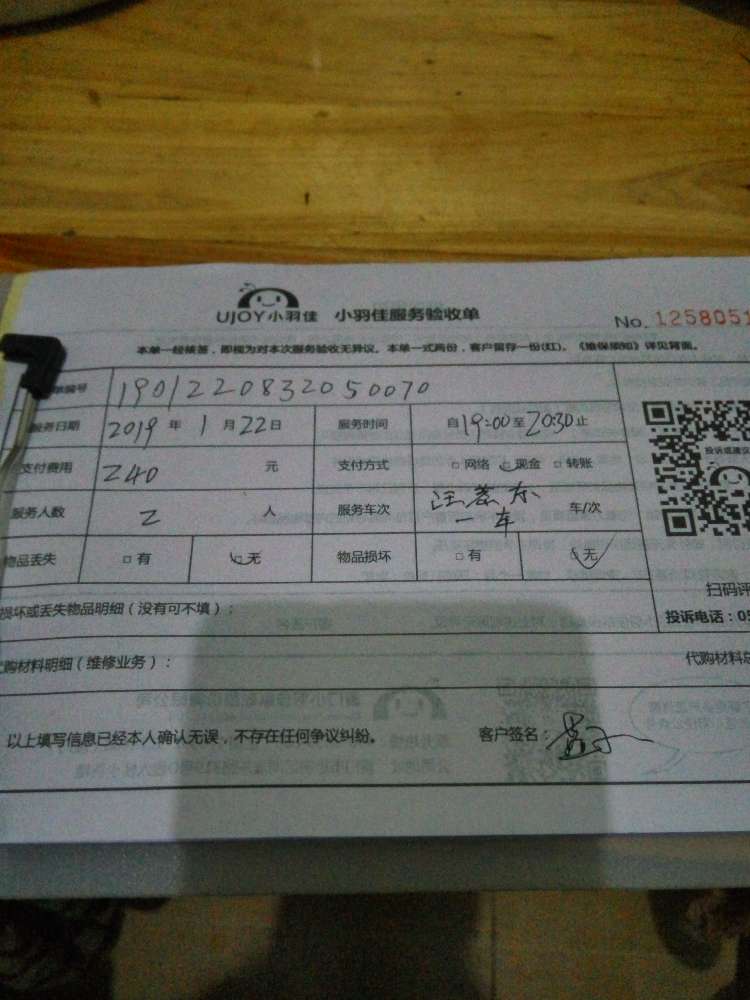 UJOY小羽佳 小羽佳服务验收单
No. 1258051
本单一经核签，即视为对本次服务验收无异议。本单一式两份，客户留存一份(红)。《维保须知》详见背面。
单编号 1901220832050070
服务日期 2019 年 1 月 22 日 服务时间 自 19:00 至 20:30 止
支付费用 240 元 支付方式 □ 网络 □ 现金 □ 转账
投诉或建议
服务人数 2 人 服务车次 一车 车/次
物品丢失 □ 有 □ 无 物品损坏 □ 有 无
扫码评
损坏或丢失物品明细（没有可不填）：
投诉电话：05
代购材料明细（维修业务）：
代购材料总
以上填写信息已经本人确认无误，不存在任何争议纠纷。 客户签名：